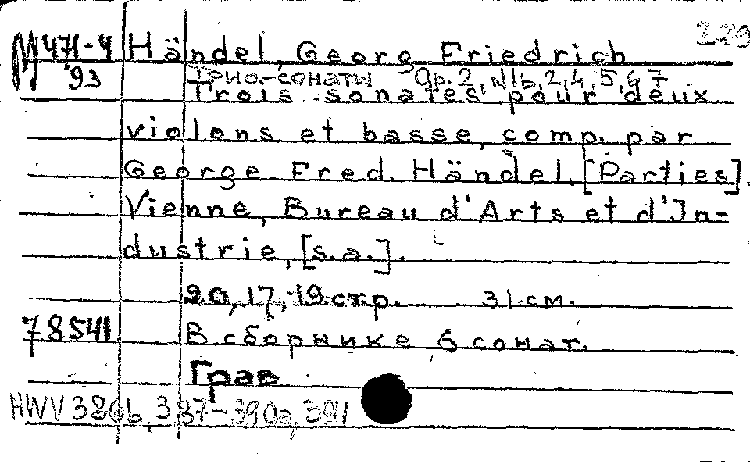 229
М 471-4 Händel, Georg Friedrich
'93 Трио-сонаты Op. 2, №1b, 2, 4, 5, 6, 7
Trois sonates pour deux
violons et basse, comp. par
George Fred. Händel. [Parties].
Vienne, Bureau d'Arts et d'In-
dustrie, [s.a.].
20, 17, 19 стр. 31 см.
78541 В сборнике 6 сонат.
Грав
HWV 386b, 387-390a, 391